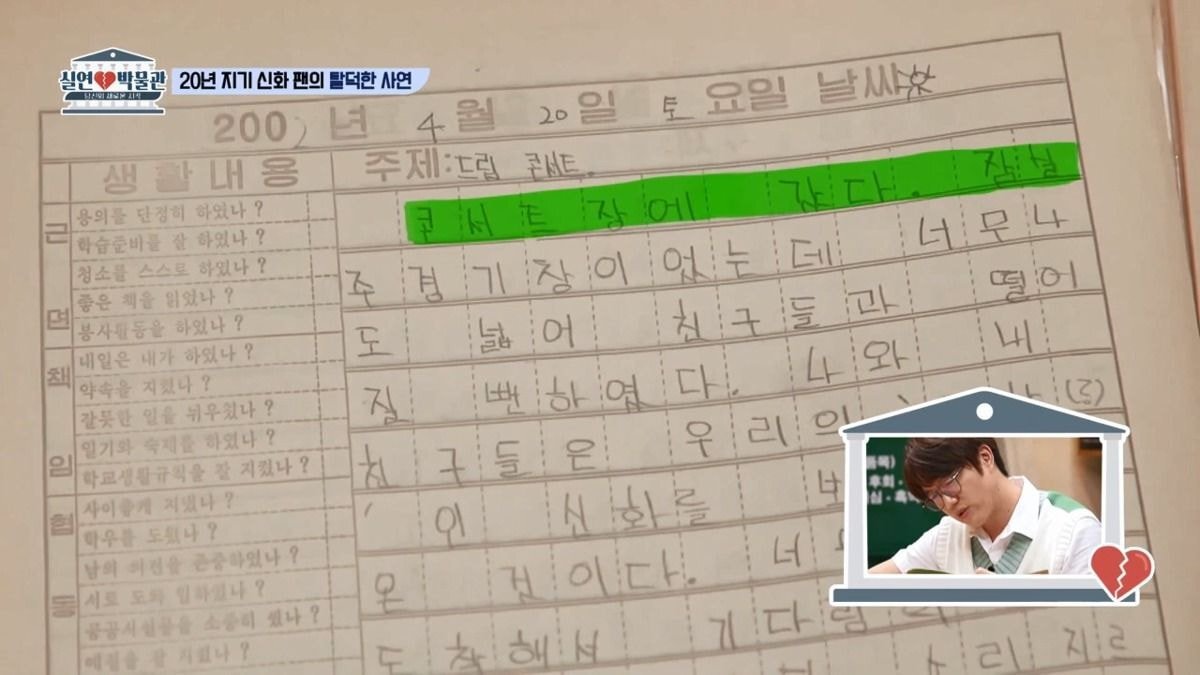 실연 박물관
당신의 새로운 시작
20년 지기 신화 팬의 탈덕한 사연
2002년 4월 20일 토요일 날씨
생활내용
주제: 드림 콘서트.
근면
용의를 단정히 하였나?
학습준비를 잘 하였나?
청소를 스스로 하였나?
좋은 책을 읽었나?
봉사활동을 하였나?
책임
내일은 내가 하였나?
약속을 지켰나?
잘못한 일을 뉘우쳤나?
일기와 숙제를 하였나?
학교생활규칙을 잘 지켰나?
협동
사이좋게 지냈나?
학우를 도왔나?
남의 의견을 존중하였나?
서로 도와 일하였나?
공공시설물을 소중히 썼나?
예절을 잘 지켰나?
콘서트장에 갔다. 잠실
주경기장이 었는데 너무나
도 넓어 친구들과 떨어
질 뻔하였다. 나와 내
친구들은 우리의
인 신화를
온 것이다.
도착해서 기다림
소리지르
후회